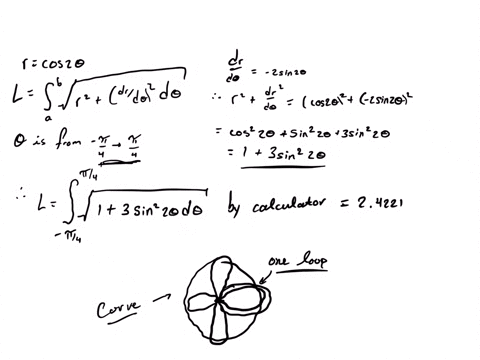 r = cos2θ
L = ∫ₐᵇ √(r² + (dr/dθ)²) dθ
θ is from -π/4 → π/4
dr/dθ = -2sin2θ
∴ r² + dr²/dθ = (cos2θ)² + (-2sin2θ)²
= cos² 2θ + sin² 2θ + 3sin² 2θ
= 1 + 3sin² 2θ
∴ L = ∫_{-π/4}^{π/4} √(1 + 3 sin² 2θ dθ) by calculator = 2.4221
one loop
Curve →